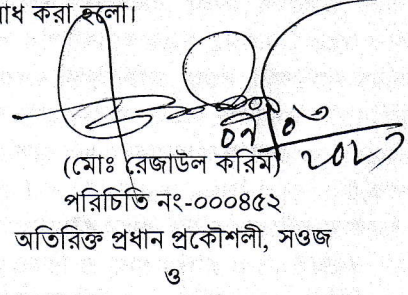 াধ করা হলো।
(মোঃ রেজাউল করিম)
পরিচিতি নং-০০০৪৫২
অতিরিক্ত প্রধান প্রকৌশলী, সওজ
ও